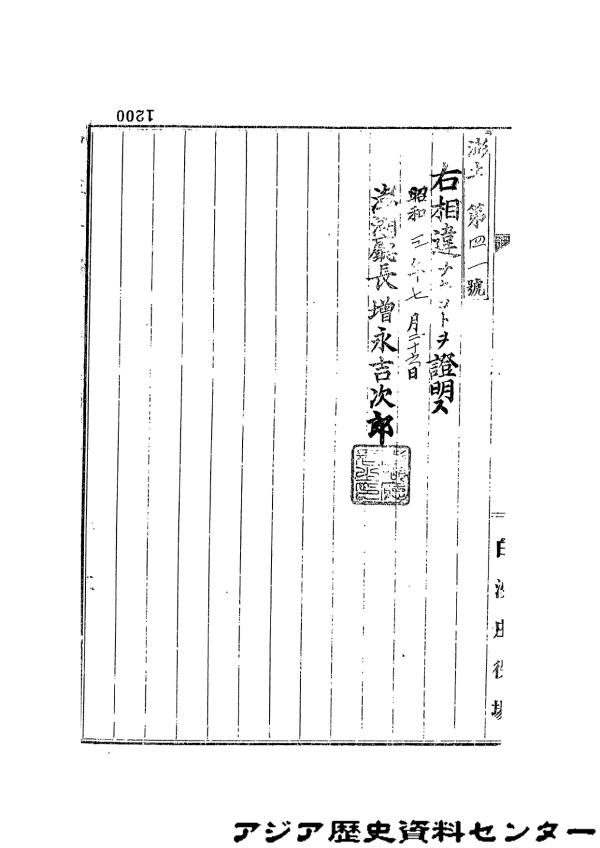 1200
澎 第四一號
右相違ナキコトヲ證明ス
昭和三年七月二十 日
澎湖廳長 增永吉次郎
白沙庄役場
アジア歴史資料センター